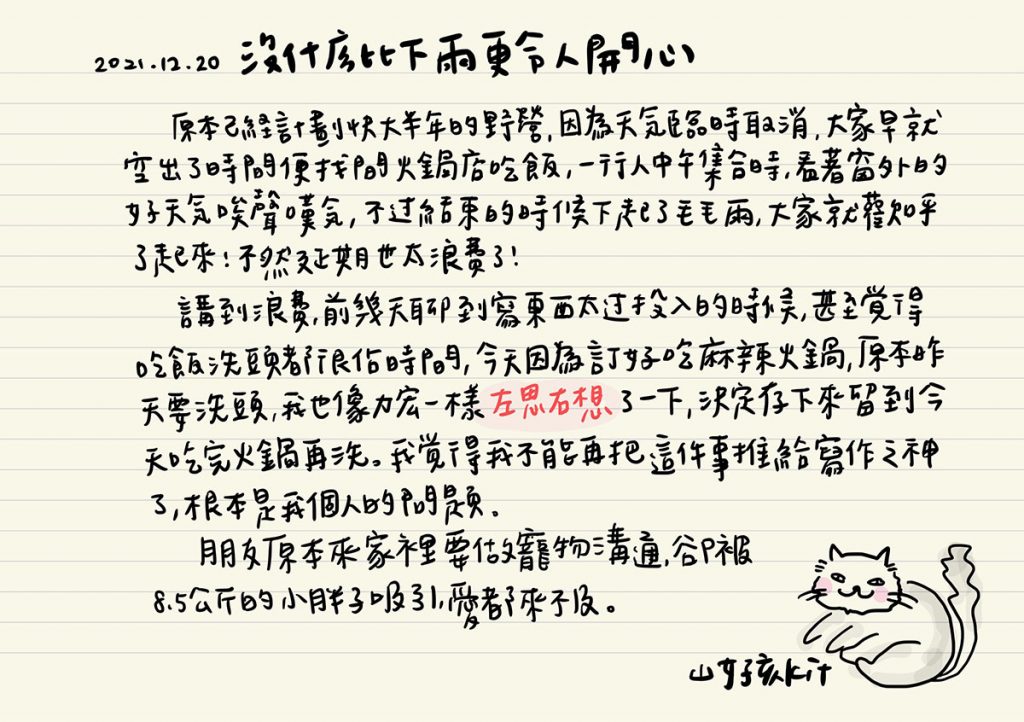 2021.12.20 沒什么比下雨更令人開心
原本已経計劃快大半年的野營,因為天気臨時取消,大家早就
空出了時間便找間火鍋店吃飯,一行人中午集合時,看著窗外的
好天気唉聲嘆気,不过結束的時候下起了毛毛雨,大家就歡呼
了起來!不然延期也太浪費了!
講到浪費,前幾天聊到寫東西太过投入的時候,甚至覚得
吃飯洗頭都很佔時間,今天因為訂好吃麻辣火鍋,原本昨
天要洗頭,我也像力宏一樣左思右想了一下,決定存下來留到今
天吃完火鍋再洗。我覚得我不能再把這件事推給寫作之神
了,根本是我個人的問題。
朋友原本來家裡要做寵物溝通,卻被
8.5公斤的小胖子吸引,愛都來不及。
山女孩kit